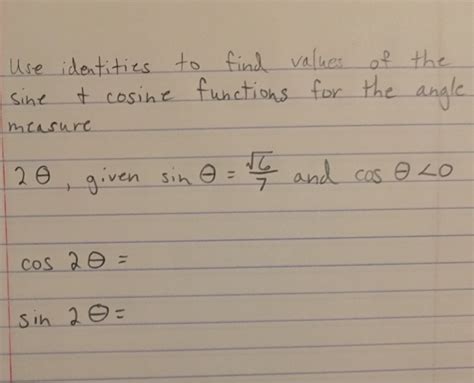 Use identities to find values of the
sine + cosine functions for the angle
measure
2θ, given sin θ = √6/7 and cos θ <0
cos 2θ =
sin 2θ=